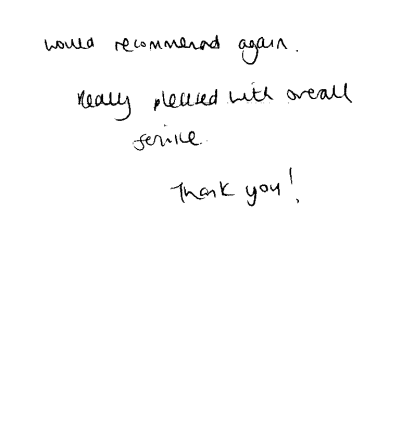 would recommend again.
Really pleased with overall
service.
Thank you!